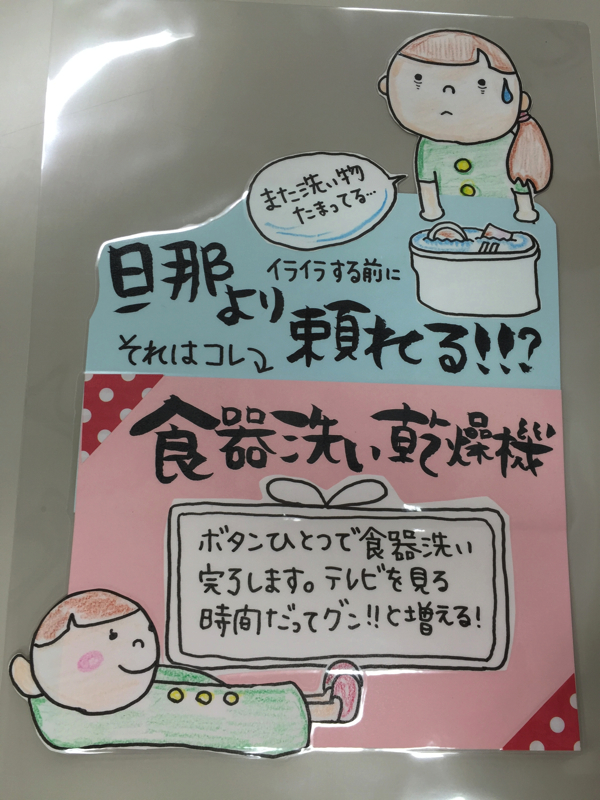 また洗い物
たまってる…
旦那より
イライラする前に
頼れる!!!?
それはコレ
食器洗い乾燥機
ボタンひとつで食器洗い
完了します。テレビを見る
時間だってグン!!と増える!